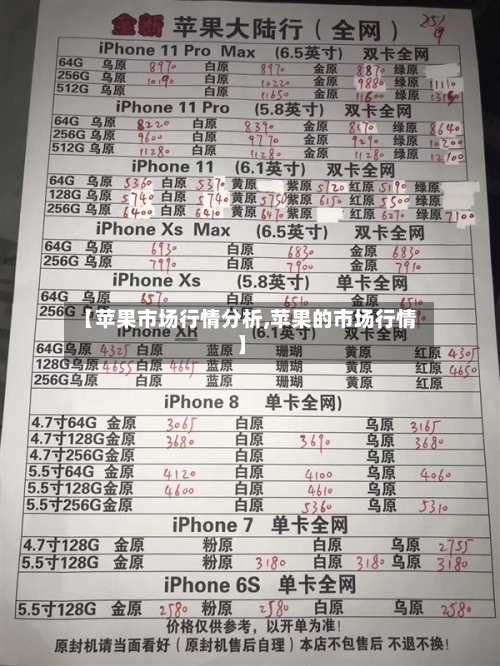 全新 苹果大陆行（全网） 25/9
iPhone 11 Pro Max (6.5英寸) 双卡全网
64G 乌原 8970 白原 8970 金原 8870 绿原
256G 乌原 10190 白原 10220 金原 9880 绿原 11110
512G 乌原 白原 11650 金原 11600 绿原
iPhone 11 Pro (5.8英寸) 双卡全网
64G 乌原 8220 白原 8390 金原 8170 绿原 8640
256G 乌原 9600 白原 9770 金原 9290 绿原 10200
512G 乌原 11280 白原 11280 金原 11280 绿原 12700
iPhone 11 (6.1英寸) 双卡全网
64G 乌原 5360 白原 5370 黄原 紫原 5720 红原 5190 绿原
128G 乌原 5740 白原 5740 黄原 5750 紫原 6150 红原 5500 绿原
256G 乌原 6400 白原 6410 黄原 6470 紫原 红原 6270 绿原 7100
iPhone Xs Max (6.5英寸) 双卡全网
64G 乌原 6930 白原 6830 金原 6830
256G 乌原 7990 白原 7900 金原 7910
iPhone Xs (5.8英寸) 单卡全网
64G 乌原 6570 白原 6510 金原 6510
256G 乌原
【苹果市场行情分析,苹果的市场行情
】
iPhone XR (6.1英寸) 双卡全网
64G乌原 4325 白原 蓝原 珊瑚 黄原 红原 4305
128G乌原 4655 白原 4665 蓝原 珊瑚 黄原 红原 4650
256G乌原 白原 蓝原 珊瑚 黄原 红原
iPhone 8 单卡全网)
4.7寸64G 金原 3065 白原 乌原 3165
4.7寸128G金原 3680 白原 3690 乌原 3680
4.7寸256G金原 白原 乌原
5.5寸64G 金原 4120 白原 4100 乌原 4060
5.5寸128G金原 4600 白原 4610 乌原
5.5寸256G金原 白原 5360 乌原 5310
iPhone 7 单卡全网
4.7寸128G 金原 粉原 白原 乌原 2755
5.5寸128G 金原 粉原 3180 白原 3180 乌原 3180
iPhone 6S 单卡全网
5.5寸128G 金原 2580 粉原 2580 白原 乌原 2580
价格仅供参考，以开单为准!
原封机请当面看好（原封机售后自理）本店不包售后 不退不换!